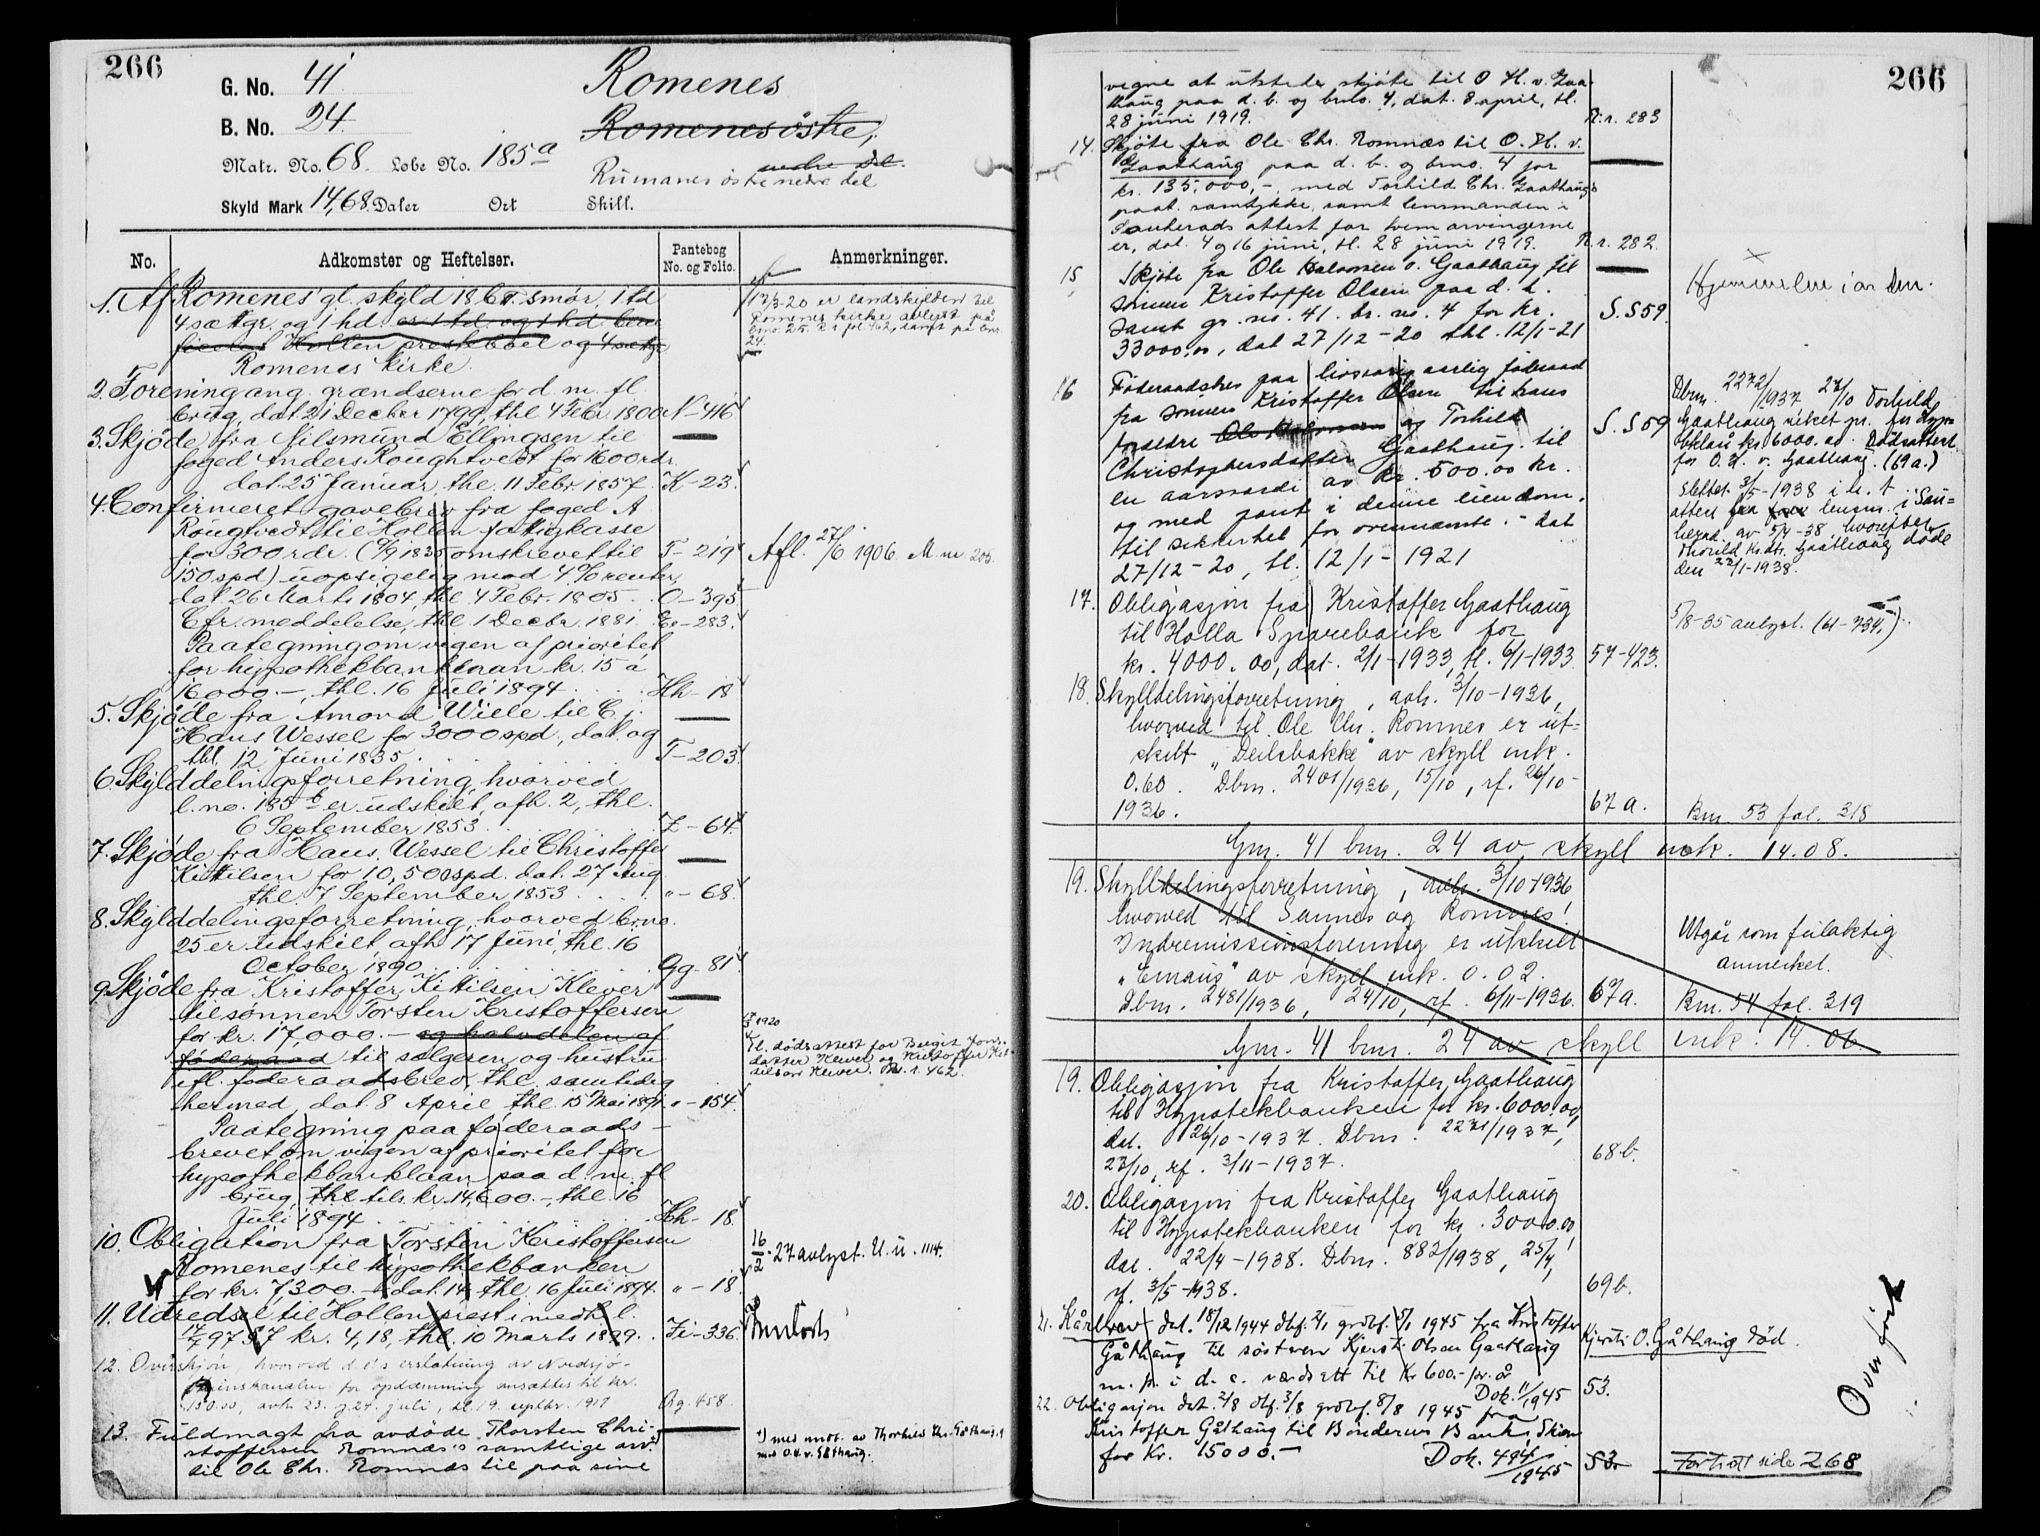 266
G. No. 41
Romenes
B. No. 24.
Romenes östre,
nedre del.
Matr. No. 68. Lobe No. 185a
Rumanes östre nedre del
Skyld Mark 14,68. Daler Ort Skill.
No. Adkomster og Heftelser. Pantebog No. og Folio. Anmerkninger.
1. Af Romenes' gl. skyld smør, 1 td
4 sættgr. og 1 hd.
Hollen prestebol og 4 sættgr
Romenes kirke.
17/3-20 er landskylden til
Romenes kirke avlyst på
bno. 25. fol. 462, samt på bno
24.
2. Forening ang. grændserne for d. m. fl.
brug, dat. 21 Decber 1799, thl. 4 Febr. 1800 N-416
3. Skjøde fra Nilsmund Ellingsen til
foged Anders Rougtvedt for 1600 rdr.
dat. 25 Januar, thl. 11 Febr. 1857. K-23.
4. Confirmeret gavebrev fra foged A
Rougtvedt til Hollen fattigkasse
for 300 rdr. (9/9 1835 omskrevet til T-219
Afl. 27/6 1906. M nr. 205.
150 spd) uopsigelig mod 4% renter,
dat. 26 Marts 1804, thl. 4 Febr. 1805. O-395
Cfr. meddelelse, thl. 1 Decbr. 1881. Ee-283.
Paategning om vigen af prioritet
for hypothekbanklaan kr. 15 a
16000.-, thl. 16 Juli 1894. Hh-18
5. Skjøde fra Amond Wiele til C. j.
Hans Wessel for 3000 spd., dat. og
thl. 12 Juni 1835. T-203
6. Skylddelingsforretning, hvorved
l. no. 185b er udskilt, afh. 2, thl.
6 September 1853. Z-64.
7. Skjøde fra Hans Wessel til Christoffer
Kittilsen for 10,500 spd. dat. 27 Aug
thl. 7 September 1853. "-68.
8. Skylddelingsforretning, hvorved bno.
25 er udskilt, afh. 17 Juni, thl. 16
October 1890. Gg-81
9. Skjøde fra Kristoffer Kittilsen Klever
til sønnen Torsten Kristoffersen
for kr. 17,000.- og halvdelen af
føderaad til sælgeren og hustru
ifl. føderaadsbrev, thl. samtidig
hermed, dat. 8 April, thl. 15 Mai 1891. "-154.
1920
Tl. dødsattest for Birgit Jons-
datter Klever og Kristoffer Kit-
tilsen Klever. R. r. 462.
Paategning paa føderaads-
brevet om vigen af prioritet for
hypothekbanklaan paa d. m. fl
brug, thl. tils. kr. 14,600.-, thl. 16
Juli 1894. Hh-18.
10. Obligation fra Torsten Kristoffersen
Romenes til hypothekbanken
for kr. 7,300.- dat. 14, thl. 16 Juli 1894. "-18.
16/2-27 avlyst. U. u. 1114.
11. Udredsel til Hollen prest i medh. l.
17/7 97 § 7 kr. 4,18, thl. 10 Marts 1899. Ii-336.
12. Overskjøn, hvorved d. e's erstatning av Nordsjø-
kanalen for opdæmning ansættes til kr.
150.00, avh. 23. og 24. juli, tl. 19. septbr. 1917 Qq. 458.
13. Fuldmagt fra avdøde Thorsten Chri-
stoffersen Romnæs's samtlige arv.
til Ole Chr. Romnæs til paa sine
1) med mot. av Thorhild Chr. Gåthaug.
O. H. v. Gåthaug.
266
vegne at utstede skjøte til O. H. v. Gaa-
thaug paa d. b. og bno. 4, dat. 8 april, tl.
28 juni 1919. R. r. 283
14. Skjøte fra Ole Chr. Romnæs til O. H. v.
Gaathaug paa d. b. og bno. 4 for
kr. 135,000,-, med Torhild Chr. Gaathaug's
paat. samtykke, samt lensmanden i
Sauherads attest for hvem arvingerne
er, dat. 4 og 16 juni, tl. 28 juni 1919. R. r. 282.
15. Skjøte fra Ole Halvorsen v. Gaathaug til
sønnen Kristoffer Olsen paa d. b.
samt gr. no. 41. br. no. 4 for kr.
33000.00, dat 27/12-20 thl. 12/1-21
S. S 59.
16. Føderaadsbrev paa livsvarig aarlig føderaad
fra sønnen Kristoffer Olsen til hans
foreldre Ole Halvorsen og Torhild
Christophersdatter Gaathaug til
en aarsværdi av kr. 500.00 kr.
og med pant i denne eiendom,
til sikkerhet for ovennævnte. - Dat
27/12-20, tl. 12/1-1921
S. S 59
Dbnr. 2272/1937 27/10 Torhild
Gaathaug veket pr. for Hypo-
teklaan kr. 6000.00. Dødsattest
for O. H. v. Gaathaug. (69 a.)
Slettet 3/5-1938 i h. t.
attest fra lensm. i Sau-
herad av 5/4-38, hvorefter
Thorild Kr.dtr. Gaathaug døde
den 22/1-1938.
17. Obligasjon fra Kristoffer Gaathaug
til Holla Sparebank for
kr. 4000.00, dat. 2/1-1933, tl. 6/1-1933. 57-423.
5/8-35 avlyst. (61-734.)
18. Skylldelingsforretning, avh. 3/10-1936,
hvorved til Ole Chr. Romnes er ut-
skilt "Deilebakke" av skyll mk.
0.60. Dbnr. 2401/1936, 15/10, rf. 26/10-
1936. 67 a. Bnr. 53 fol. 318
Gnr. 41 bnr. 24 av skyll mk. 14.08.
19. Skylldelingsforretning, avh. 3/10-1936
hvorved til Sannes og Romnes'
Indremissionsforening er utskilt
"Emaus" av skyll mk. 0.02.
Dbnr. 2481/1936, 24/10, rf. 6/11-1936. 67 a. Bnr. 54 fol. 319
Utgår som feilaktig
anmerket.
Gnr. 41 bnr. 24 av skyll mk. 14.06.
19. Obligasjon fra Kristoffer Gaathaug
til Hypotekbanken for kr. 6000.00,
dat. 26/10-1937. Dbnr. 2271/1937,
27/10, rf. 3/11-1937. 68 b.
20. Obligasjon fra Kristoffer Gaathaug
til Hypotekbanken for kr. 3000.00,
dat. 22/4-1938. Dbnr. 882/1938, 25/4,
rf. 3/5-1938. 69 b.
21. Kårbrev dat. 18/12 1944 dbf. 2/1 grdbf. 5/1 1945 fra Kristoffer
Gåthaug til søsteren Kjersti Olsen Gaathaug
m. pr. i d. e. verdsett til Kr 600.- pr. år
Dok. 11/1945 53.
Kjersti O. Gåthaug død.
22. Obligasjon dat. 2/8 dbf. 3/8 grdbf. 8/8 1945 fra
Kristoffer Gåthaug til Bøndernes Bank, Skien
for Kr. 15000.-
Dok. 494/1945 53.
Fortsatt side 268
Overført